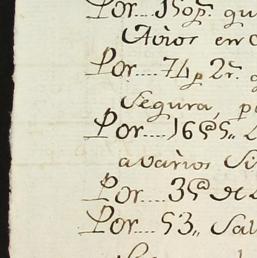 Por....150p.s qu
Avíos en
Por....74p 2r.s
Segura, p
Por....16@s..
avarios Si
Por....3@ de
Por....53,, Sal